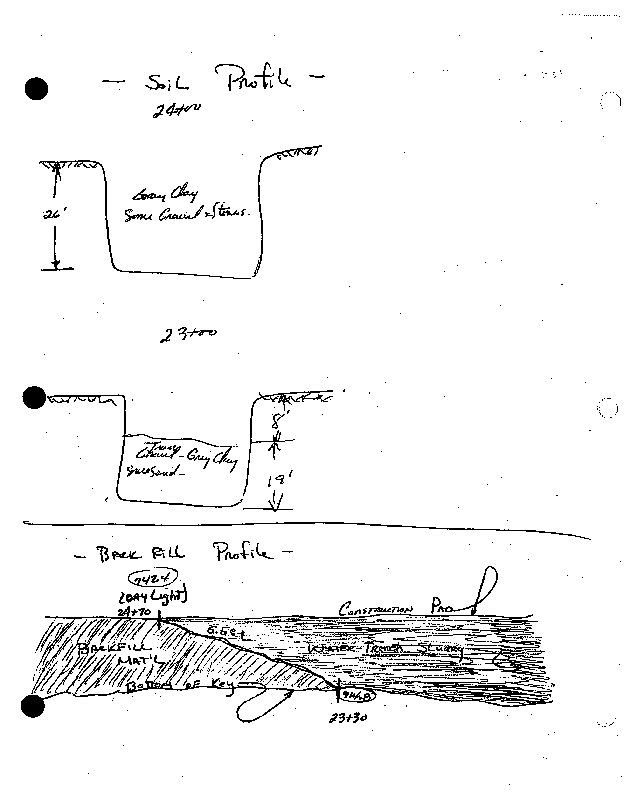 - Soil Profile -
24+00
26'
Gray Clay
Some Gravel & Stones.
23+00
8'
Gravel - Grey Clay
18'
- Back Fill Profile -
(Day Light)
24+70
Construction
Backfill
Mat'l
Trench Slurry
Bottom of Key
23+30